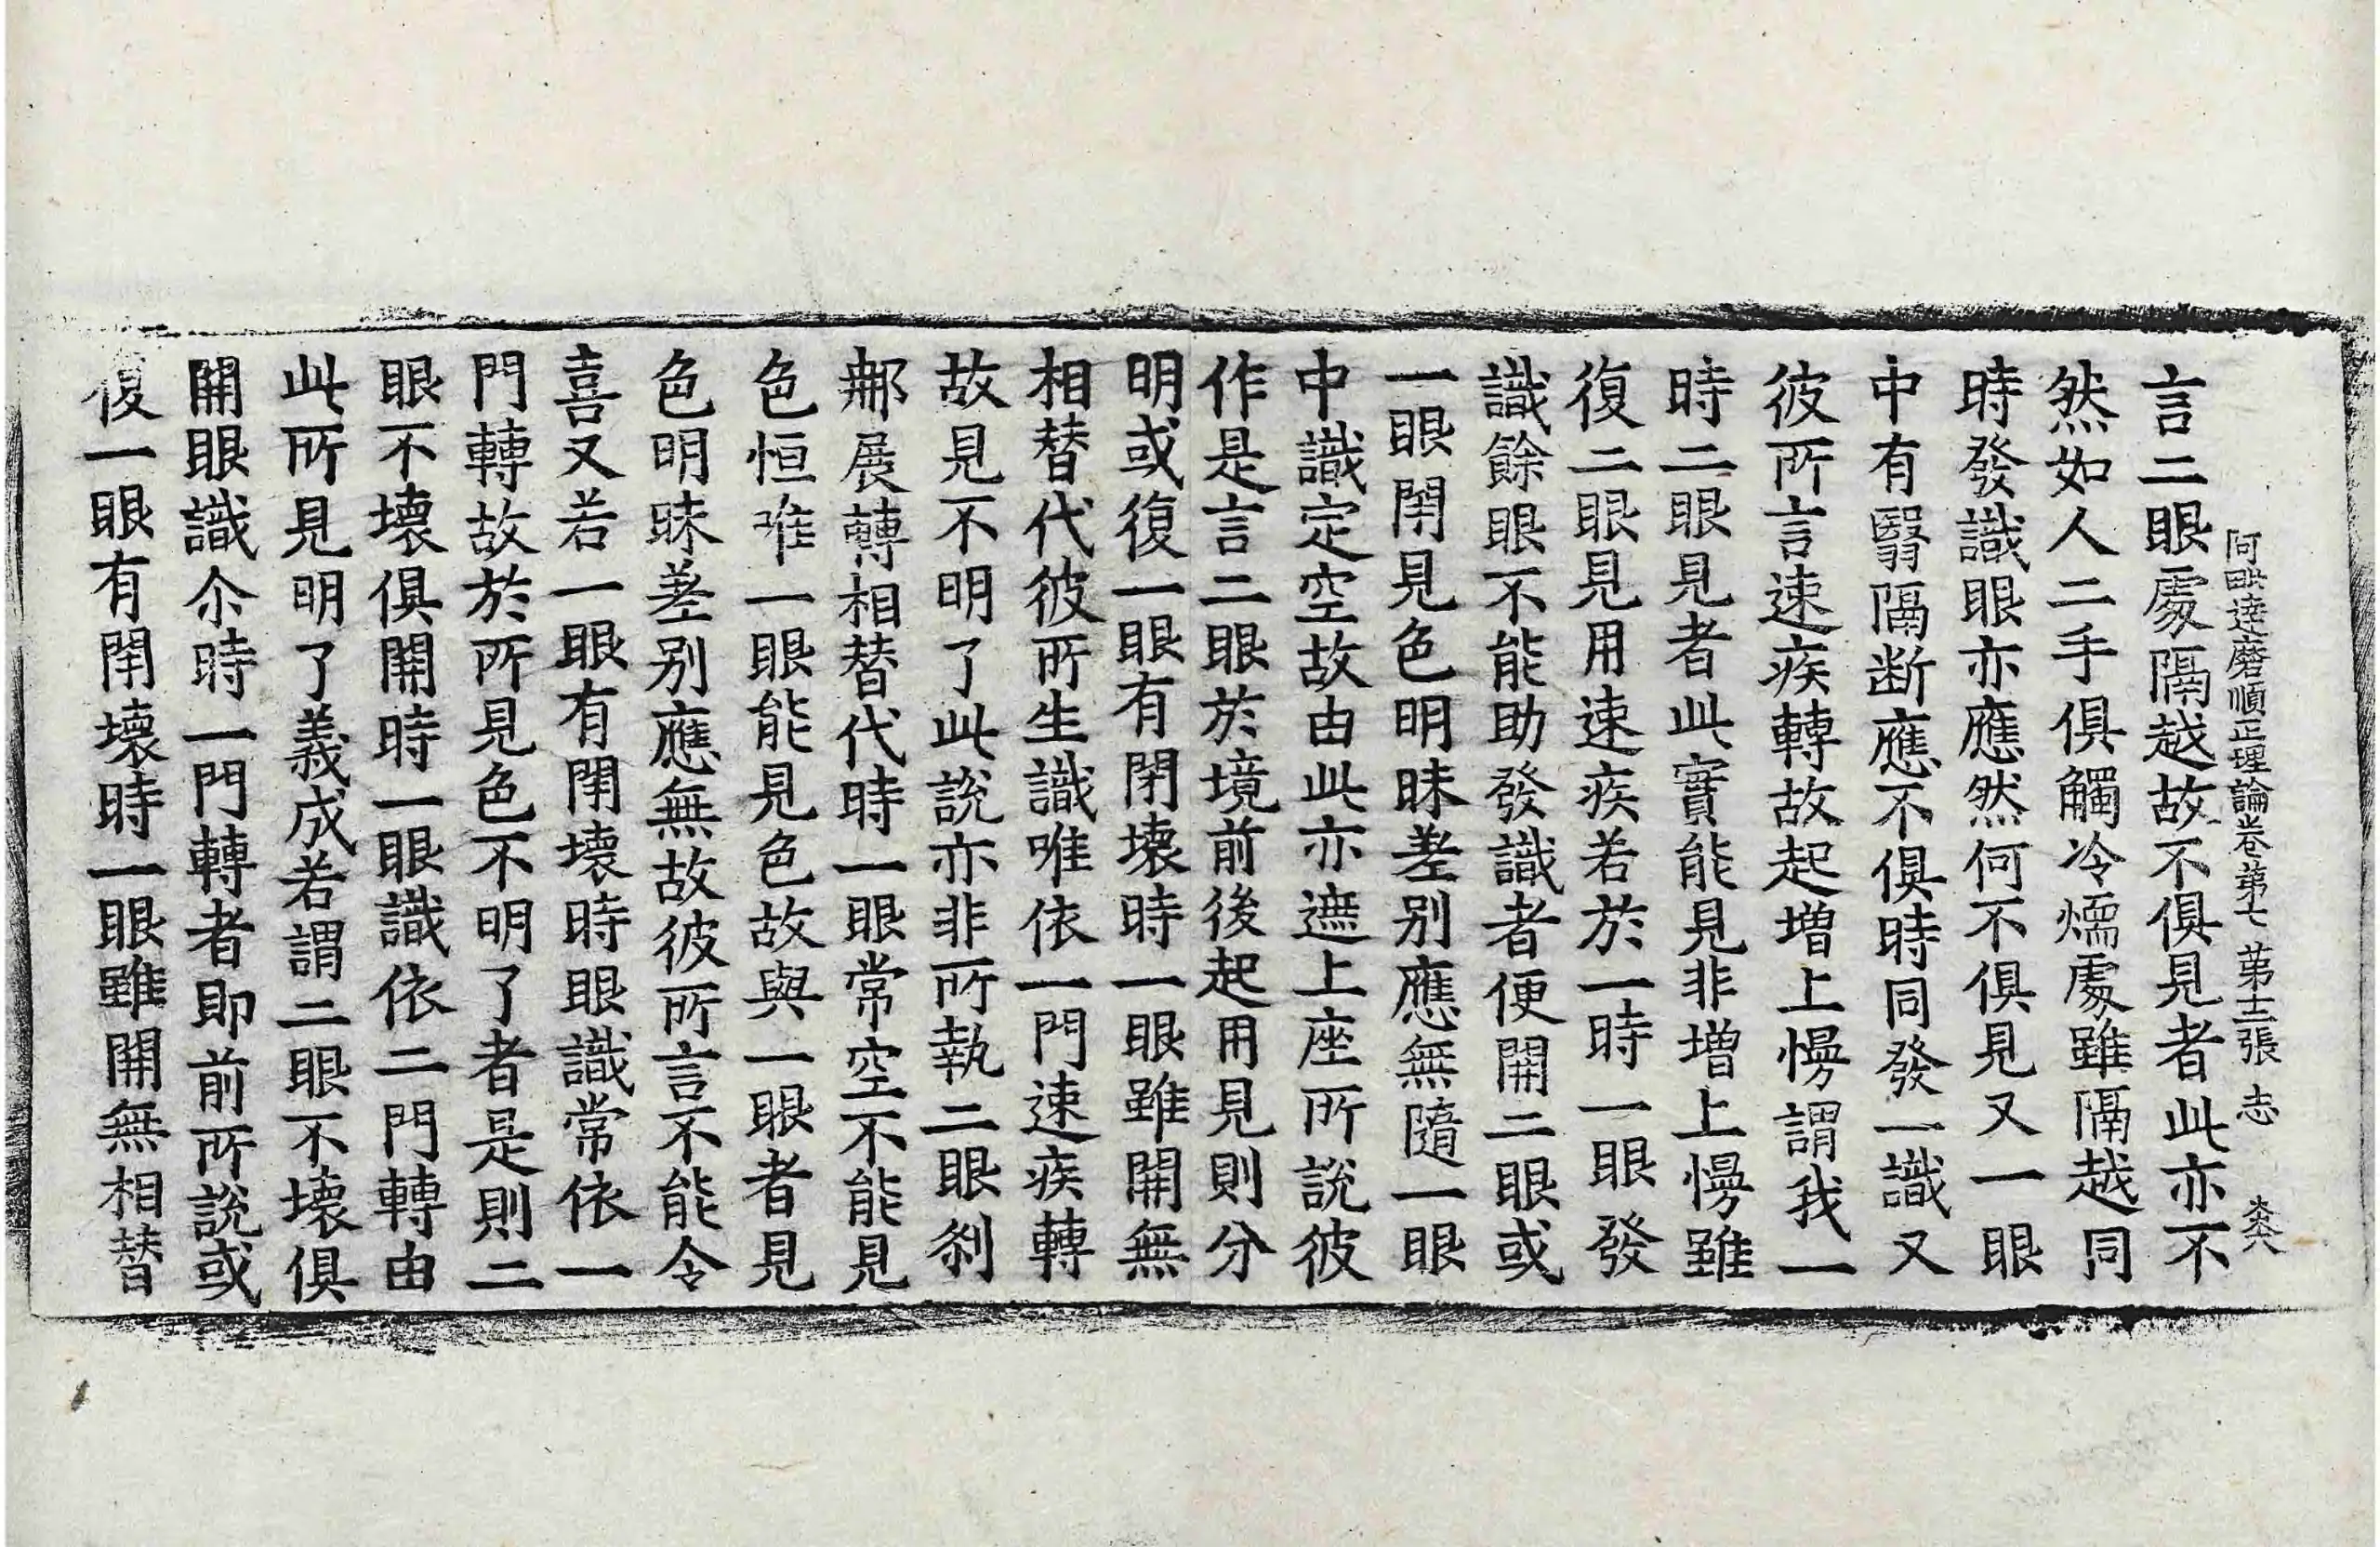 阿毗達磨順正理論卷第七 第十二張 志
言二眼處隔越故不俱見者此亦不
然如人二手俱觸冷煗處雖隔越同
時發識眼亦應然何不俱見又一眼
中有翳隔断應不俱時同發一識又
彼所言速疾轉故起增上慢謂我一
時二眼見者此實能見非增上慢雖
復二眼見用速疾若於一時一眼發
識餘眼不能助發識者便開二眼或
一眼閇見色明昧差别應無隨一眼
中識定空故由此亦遮上座所說彼
作是言二眼於境前後起用見則分
明或復一眼有閉壞時一眼雖開無
相替代彼所生識唯依一門速疾轉
故見不明了此說亦非所執二眼剎
那展轉相替代時一眼常空不能見
色恒唯一眼能見色故與一眼者見
色明昧差别應無故彼所言不能令
喜又若一眼有閇壞時眼識常依一
門轉故於所見色不明了者是則二
眼不壞俱開時一眼識依二門轉由
此所見明了義成若謂二眼不壞俱
開眼識尒時一門轉者即前所說或
復一眼有閇壞時一眼雖開無相替